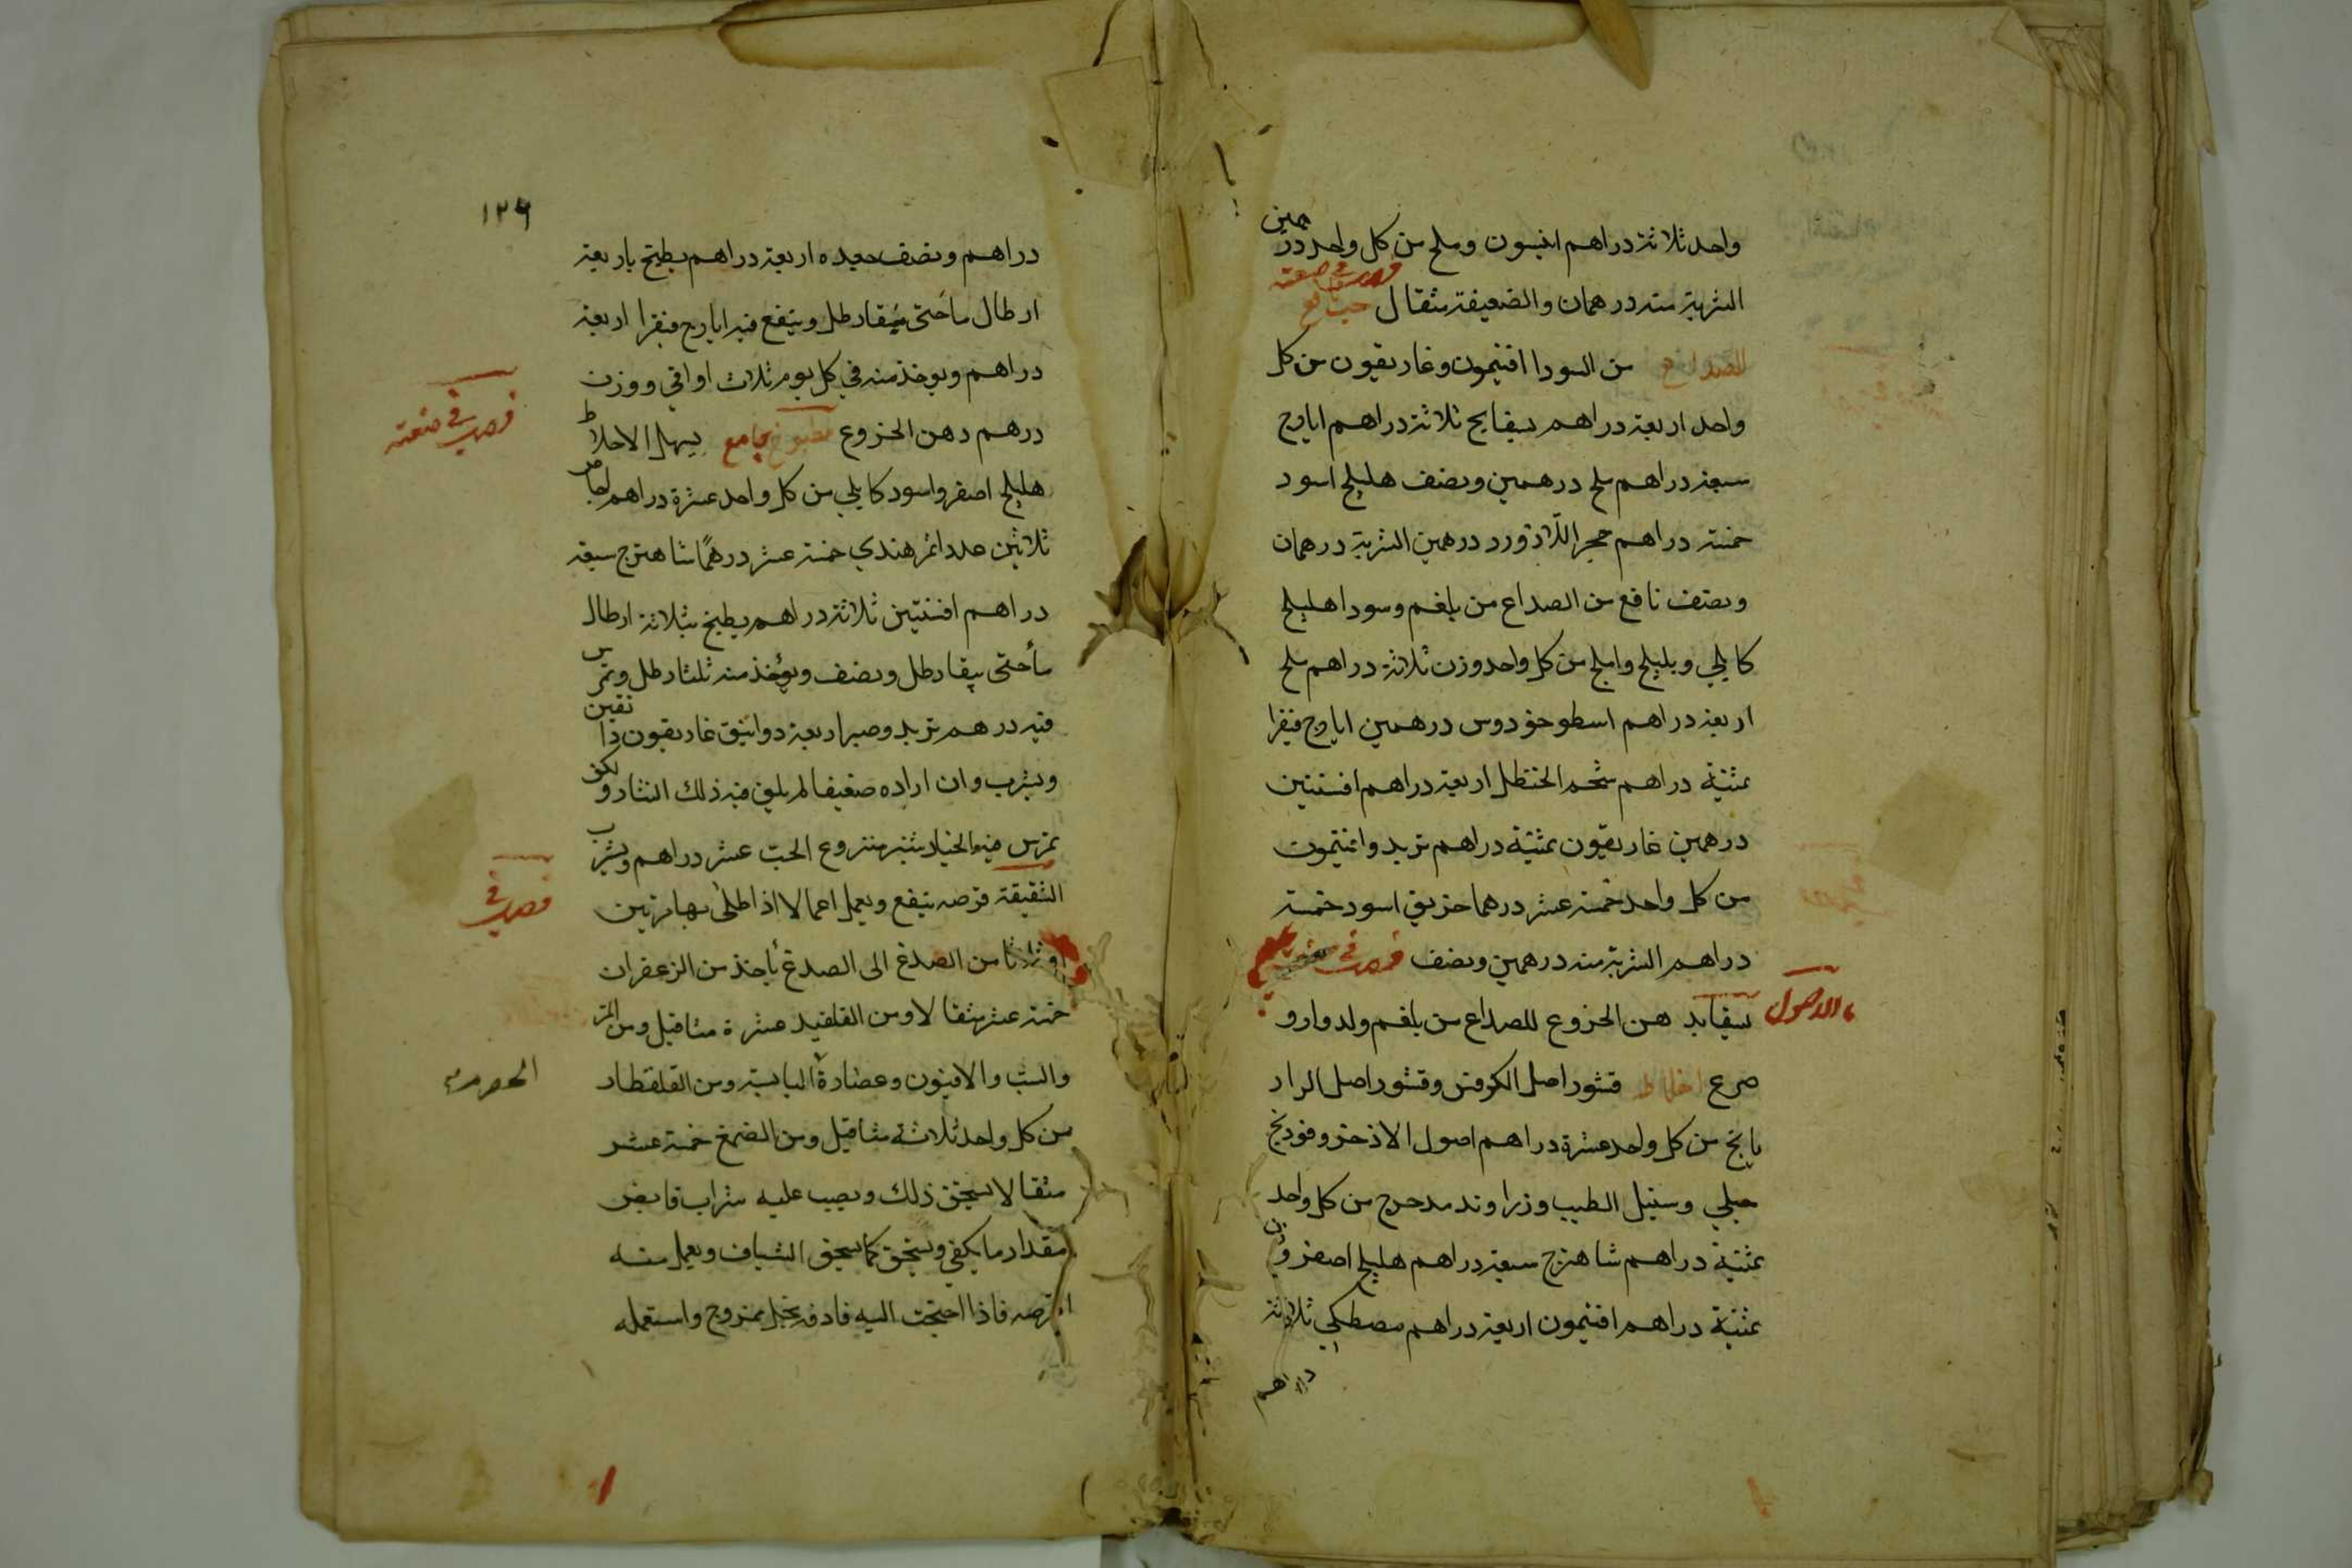 واحد ثلاثة دراهم انيسون وملح من كل واحد درهمين
الشربة منه درهمان والضعيفة مثقال
من السودا افتيمون وغاريقون من كل
واحد اربعة دراهم بسفايج ثلاثة دراهم ايارج
سبعة دراهم ملح درهمين ونصف هليلج اسود
خمسة دراهم حجر اللازورد درهمين الشربة درهمان
ونصف نافع من الصداع من بلغم وسودا هليلج
كابلي وبليلج واملج من كل واحد وزن ثلاثة دراهم ملح
اربعة دراهم اسطوخودوس درهمين ايارج فيقرا
ثمنية دراهم شحم الحنظل اربعة دراهم افسنتين
درهمين غاريقون ثمنية دراهم تربد وافتيمون
من كل واحد خمسة عشر درهما خربق اسود خمسة
دراهم الشربة منه درهمين ونصف فصل في
ماء الاصول
هن الخروع للصداع من بلغم ولدوار و
صرع اخلاط قشور اصل الكرفس وقشور اصل الراز
يانج من كل واحد عشرة دراهم اصول الاذخر وفودنج
جبلي وسنبل الطيب وزراوند مدحرج من كل واحد
ثمنية دراهم شاهترج سبعة دراهم هليلج اصفر وزن
ثمنية دراهم افتيمون اربعة دراهم مصطكي ثلاثة
دراهم
١٢٦
دراهم ونصف اربعة دراهم يطبخ باربعة
ارطال ماء حتى يبقا رطل وينقع فيه ايارج فيقرا اربعة
دراهم ويوخذ منه في كل يوم ثلاث اواقي ووزن
درهم دهن الخروع مطبوخ جامع يسهل الاخلاط
فصل في صنعة
هليلج اصفر واسود كابلي من كل واحد عشرة دراهم اجاص
ثلاثين عددا تمر هندي خمسة عشر درهمًا شاهترج سبعة
دراهم افسنتين ثلاثة دراهم يطبخ بثلاثة ارطال
ماء حتى يبقا رطل ونصف ويؤخذ منه ثلثا رطل وتمرس
فيه درهم تربد وصبر اربعة دوانيق غاريقون دانقين
ويشرب وان اراده ضعيفا لم يلق فيه ذلك ولكن
تمرس فيه الخيارشنبر منزوع الحب عشر دراهم ويشرب
فصل في
الشقيقة قرصه ينفع ويعمل اعمالا اذا طلى بها مرتين
او ثلاثا من الصدغ الى الصدغ يأخذ من الزعفران
خمسة عشر مثقالا ومن القلقديد عشرة مثاقيل ومن المر
والشب والافيون وعصارة اليابسة ومن القلقطار
الحصرم
من كل واحد ثلاثة مثاقيل ومن الصمغ خمسة عشر
مثقالا يسحق ذلك ويصب عليه شراب قابض
مقدار ما يكفي ويسحق كما يسحق الشياف ويعمل منه
اقرصه فاذا احتجت اليه فادفه بخل ممزوج واستعمله